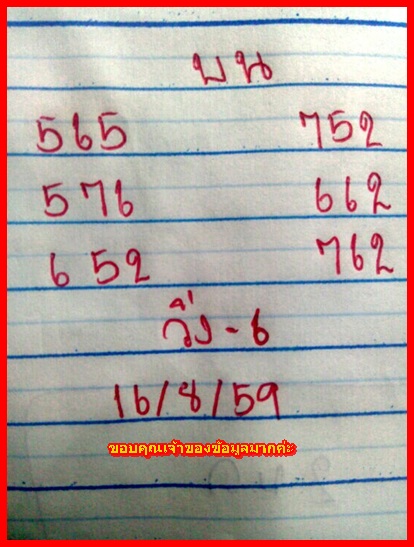 บน
565 752
576 662
652 762
วิ่ง - 6
16/8/59
ขอบคุณเจ้าของข้อมูลมากค่ะ